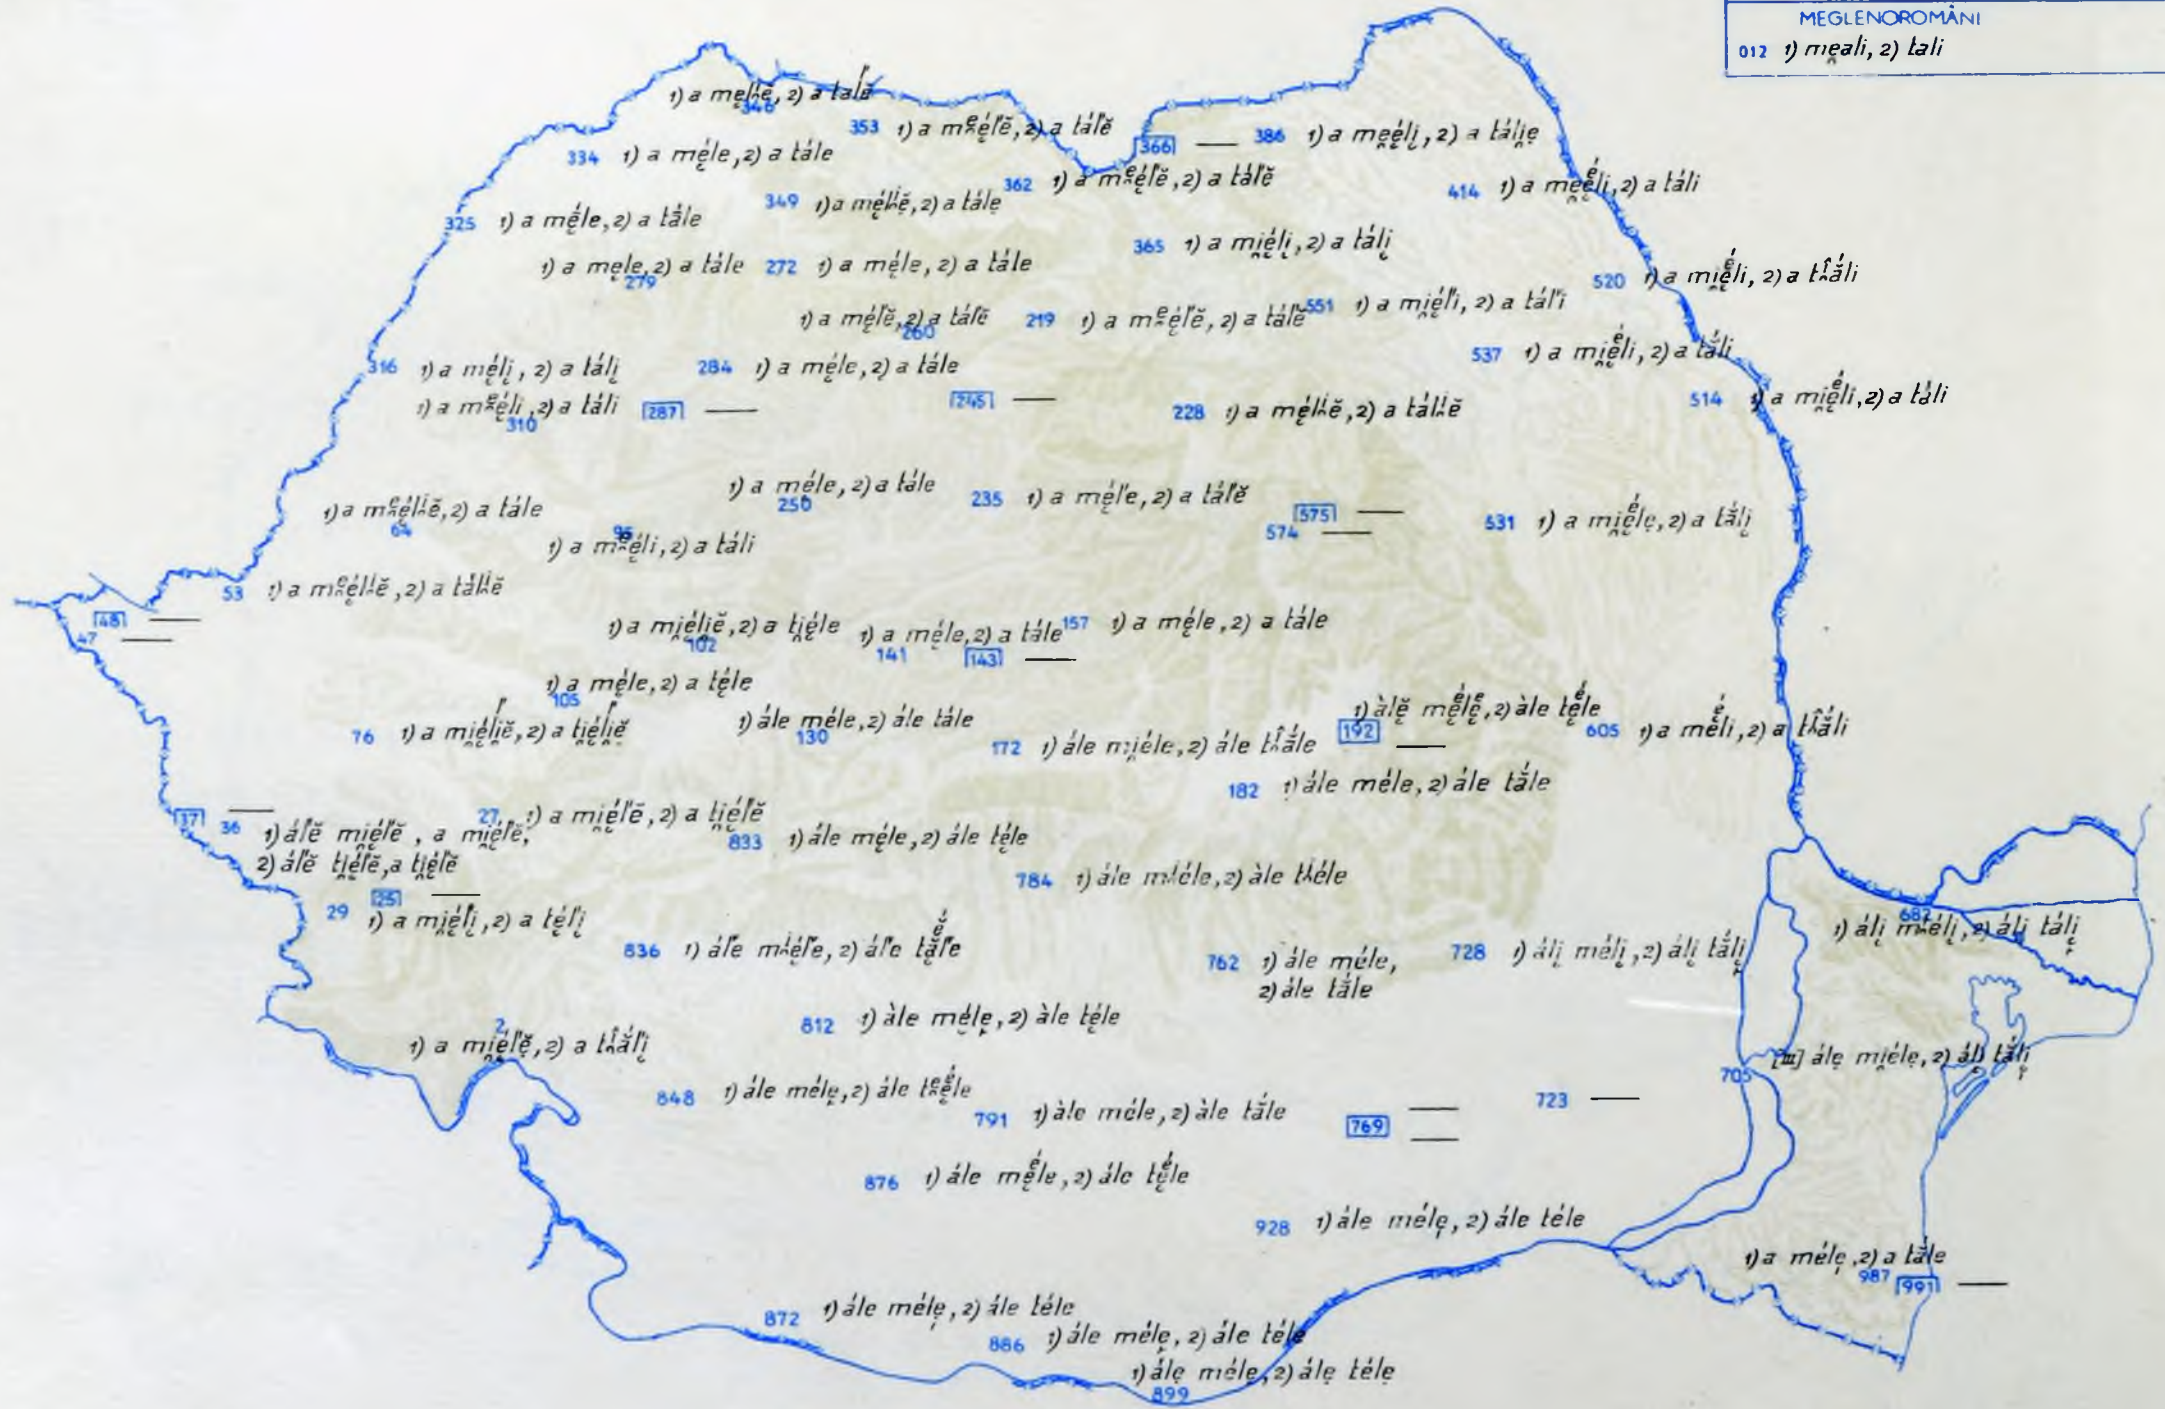 MEGLENOROMÂNI
012 1) mẹali, 2) tali
346 1) a mẹl'ĕ, 2) a tal'ĕ
353 1) a mᵉ̯ẹ́l'ĕ, 2) a tál'ĕ
366 —
386 1) a mẹẹ́li̯, 2) a táli̯ẹ
334 1) a mẹ́le, 2) a tále
362 1) a mᵉ̯ẹ́l'ĕ, 2) a tál'ĕ
414 1) a mẹẹ́li, 2) a táli
349 1) a mẹ́l'ĕ, 2) a tálẹ
325 1) a mẹ́le, 2) a tắle
365 1) a mi̯ẹ́li̯, 2) a táli̯
279 1) a mẹle, 2) a tále
272 1) a mẹ́le, 2) a tále
520 1) a mi̯ẹ́li, 2) a tâắli
551 1) a mi̯ẹ́l'i, 2) a tál'i
260 1) a mẹ́l'ĕ, 2) a tál'ĕ
219 1) a mᵉ̯ẹ́l'ĕ, 2) a tál'ĕ
537 1) a mi̯ẹ́li, 2) a tắli
316 1) a mẹ́li̯, 2) a táli̯
284 1) a mẹ́le, 2) a tále
514 1) a mi̯ẹ́li, 2) a táli
310 1) a mᵉ̯ẹ́li, 2) a táli
287 —
245 —
228 1) a mẹ́l'ĕ, 2) a tál'ĕ
250 1) a mẹ́le, 2) a tále
235 1) a mẹ́l'e, 2) a tál'ĕ
575 —
574 —
531 1) a mi̯ẹ́lẹ, 2) a tắli̯
64 1) a mᵉ̯ẹ́l'ĕ, 2) a tále
95 1) a mᵉ̯ẹ́li, 2) a táli
53 1) a mᵉ̯ẹ́l'ĕ, 2) a tál'ĕ
48 —
47 —
102 1) a mi̯ẹ́li̯ĕ, 2) a ti̯ẹ́le
141 1) a mẹ́le, 2) a tále
143 —
157 1) a mẹ́le, 2) a tále
105 1) a mẹ́le, 2) a tẹ́le
76 1) a mi̯ẹ́l'i̯ĕ, 2) a ti̯ẹ́l'i̯ĕ
130 1) ále méle, 2) ále tále
172 1) ále mi̯éle, 2) ále tâắle
192 —
1) àlĕ mẹ́lẹ, 2) àle tẹ́le
605 1) a mẹ́li, 2) a tâắli
182 1) ále méle, 2) ále tắle
37 —
36 1) ál'ĕ mi̯ẹ́l'ĕ, a mi̯ẹ́l'ĕ,
2) ál'ĕ ti̯ẹ́l'ĕ, a ti̯ẹ́l'ĕ
27 1) a mi̯ẹ́l'ĕ, 2) a ti̯ẹ́l'ĕ
833 1) ále mẹ́le, 2) ále tẹ́le
784 1) ále mi̯éle, 2) àle ti̯éle
25 —
29 1) a mi̯ẹ́l'i̯, 2) a tẹ́l'i̯
682 1) áli̯ mᵉ̯ẹ́li̯, 2) áli̯ táli̯
836 1) ál'e mi̯ẹ́l'e, 2) ál'e tẹ́l'e
762 1) ále méle,
2) ále tắle
728 1) áli̯ méli̯, 2) áli̯ tắli̯
2 1) a mi̯ẹ́l'ĕ, 2) a tâắl'i̯
812 1) àle mẹ́lẹ, 2) àle tẹ́le
705 [III] álẹ mi̯élẹ, 2) áli̯ tắli̯
848 1) ále mélẹ, 2) ále tᵉ̯ẹ́le
791 1) àle méle, 2) àle tắle
769 —
—
723 —
876 1) ále mẹ́le, 2) ále tẹ́le
928 1) ále mélẹ, 2) ále téle
987 1) a mélẹ, 2) a tắle
991 —
872 1) ále mélẹ, 2) ále téle
886 1) ále mélẹ, 2) ále téle
899 1) álẹ mélẹ, 2) álẹ télẹ